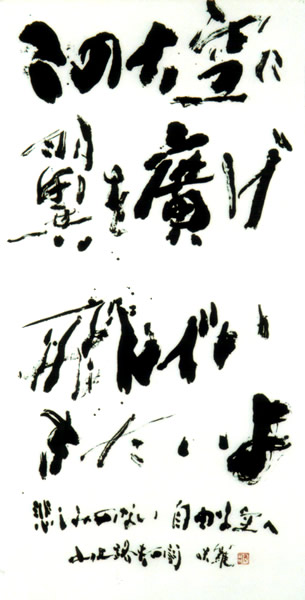 この大空に
翼を廣げ
飛んでい
きたいよ
悲しみのない 自由な空へ